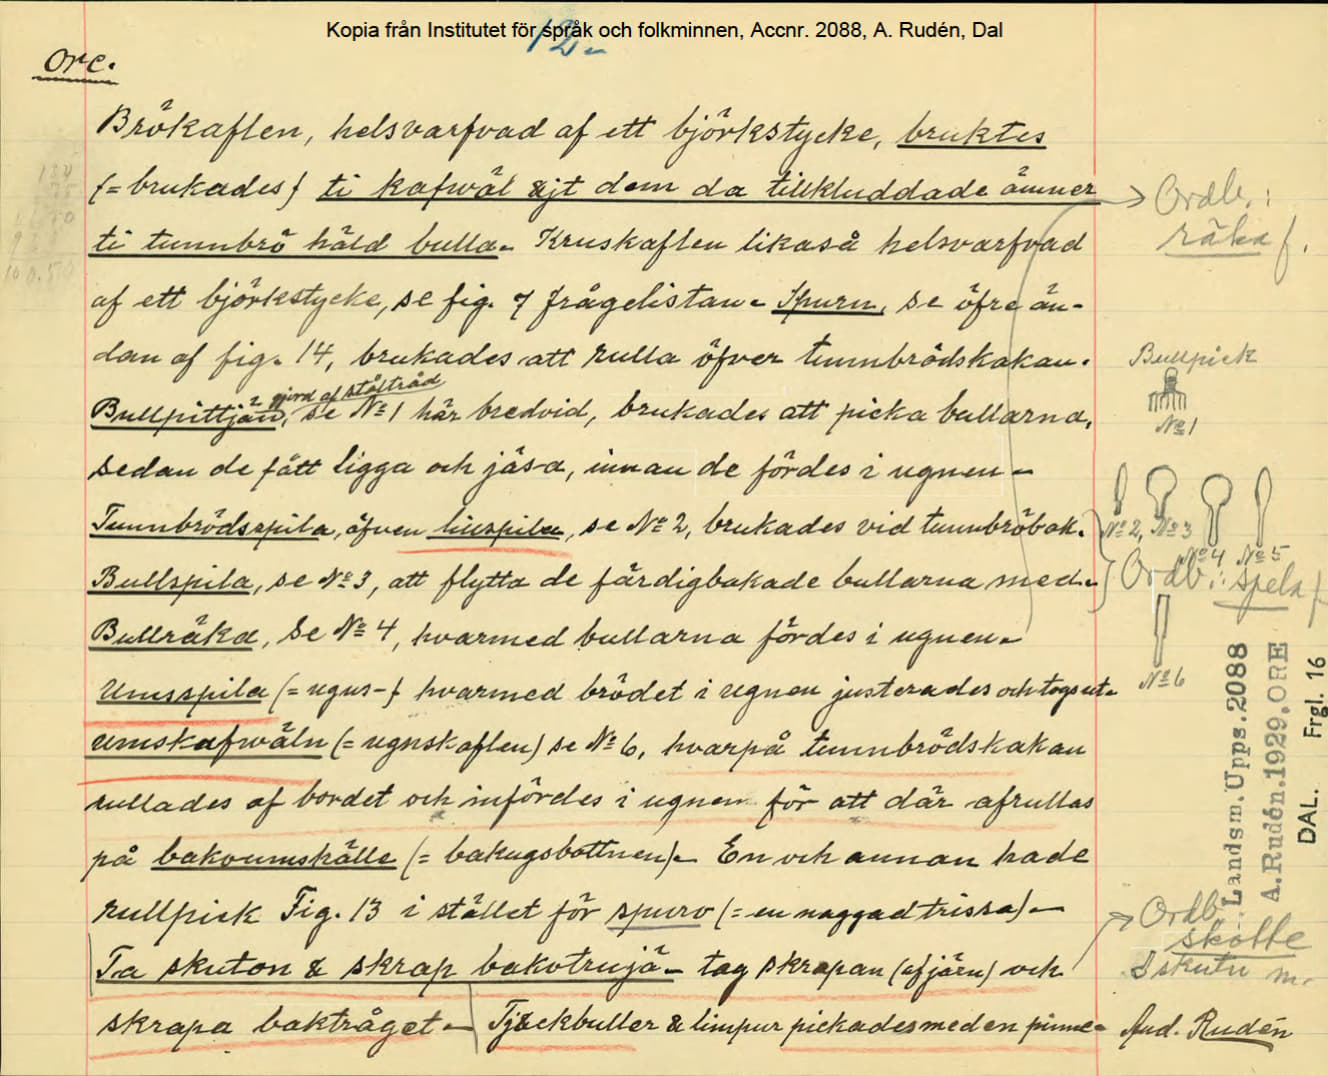 Kopia från Institutet för språk och folkminnen, Accnr. 2088, A. Rudén, Dal
12.
Ore.
Brökaflen, helsvarfvad af ett björkstycke, bruktes
(= brukades) ti kafwäl äjt dem da tillkluddade ämner
ti tunnbrö håld bulla. Kruskaflen likaså helsvarfvad
af ett björkstycke, se fig. 7 frågelistan. Spurn, se öfre än-
dan af fig. 14, brukades att rulla öfver tunnbrödskakan.
gjord af ståltråd
Bullpittjän, se № 1 här bredvid, brukades att picka bullarna,
sedan de fått ligga och jäsa, innan de fördes i ugnen.
Tunnbrödsspila, äfven liuspila, se № 2, brukades vid tunnbröbak.
Bullspila, se № 3, att flytta de färdigbakade bullarna med.
Bullråka, se № 4, hvarmed bullarna fördes i ugnen.
Umsspila (= ugns-) hvarmed brödet i ugnen justerades och togs ut.
Umskafwäln (= ugnskaflen) se № 6, hvarpå tunnbrödskakan
rullades af bordet och infördes i ugnen för att där afrullas
på bakoumshälle (= bakugsbottnen). En och annan hade
rullpick Fig. 13 i stället för spuro (= en naggad trissa).
Ta skuton & skrap bakotrujä. tag skrapan (af järn) och
skrapa baktråget. Tjäckbullar & limpur pickades med en pinne.
Ordb.:
råka f.
Bullpick
№ 1
№ 2, № 3
№ 4 № 5
Ordb.: spela f
№ 6
Landsm. Upps. 2088
A. Rudén. 1929. ORE
DAL. Frgl. 16
Ordb.
skotte
skutu m.
And. Rudén